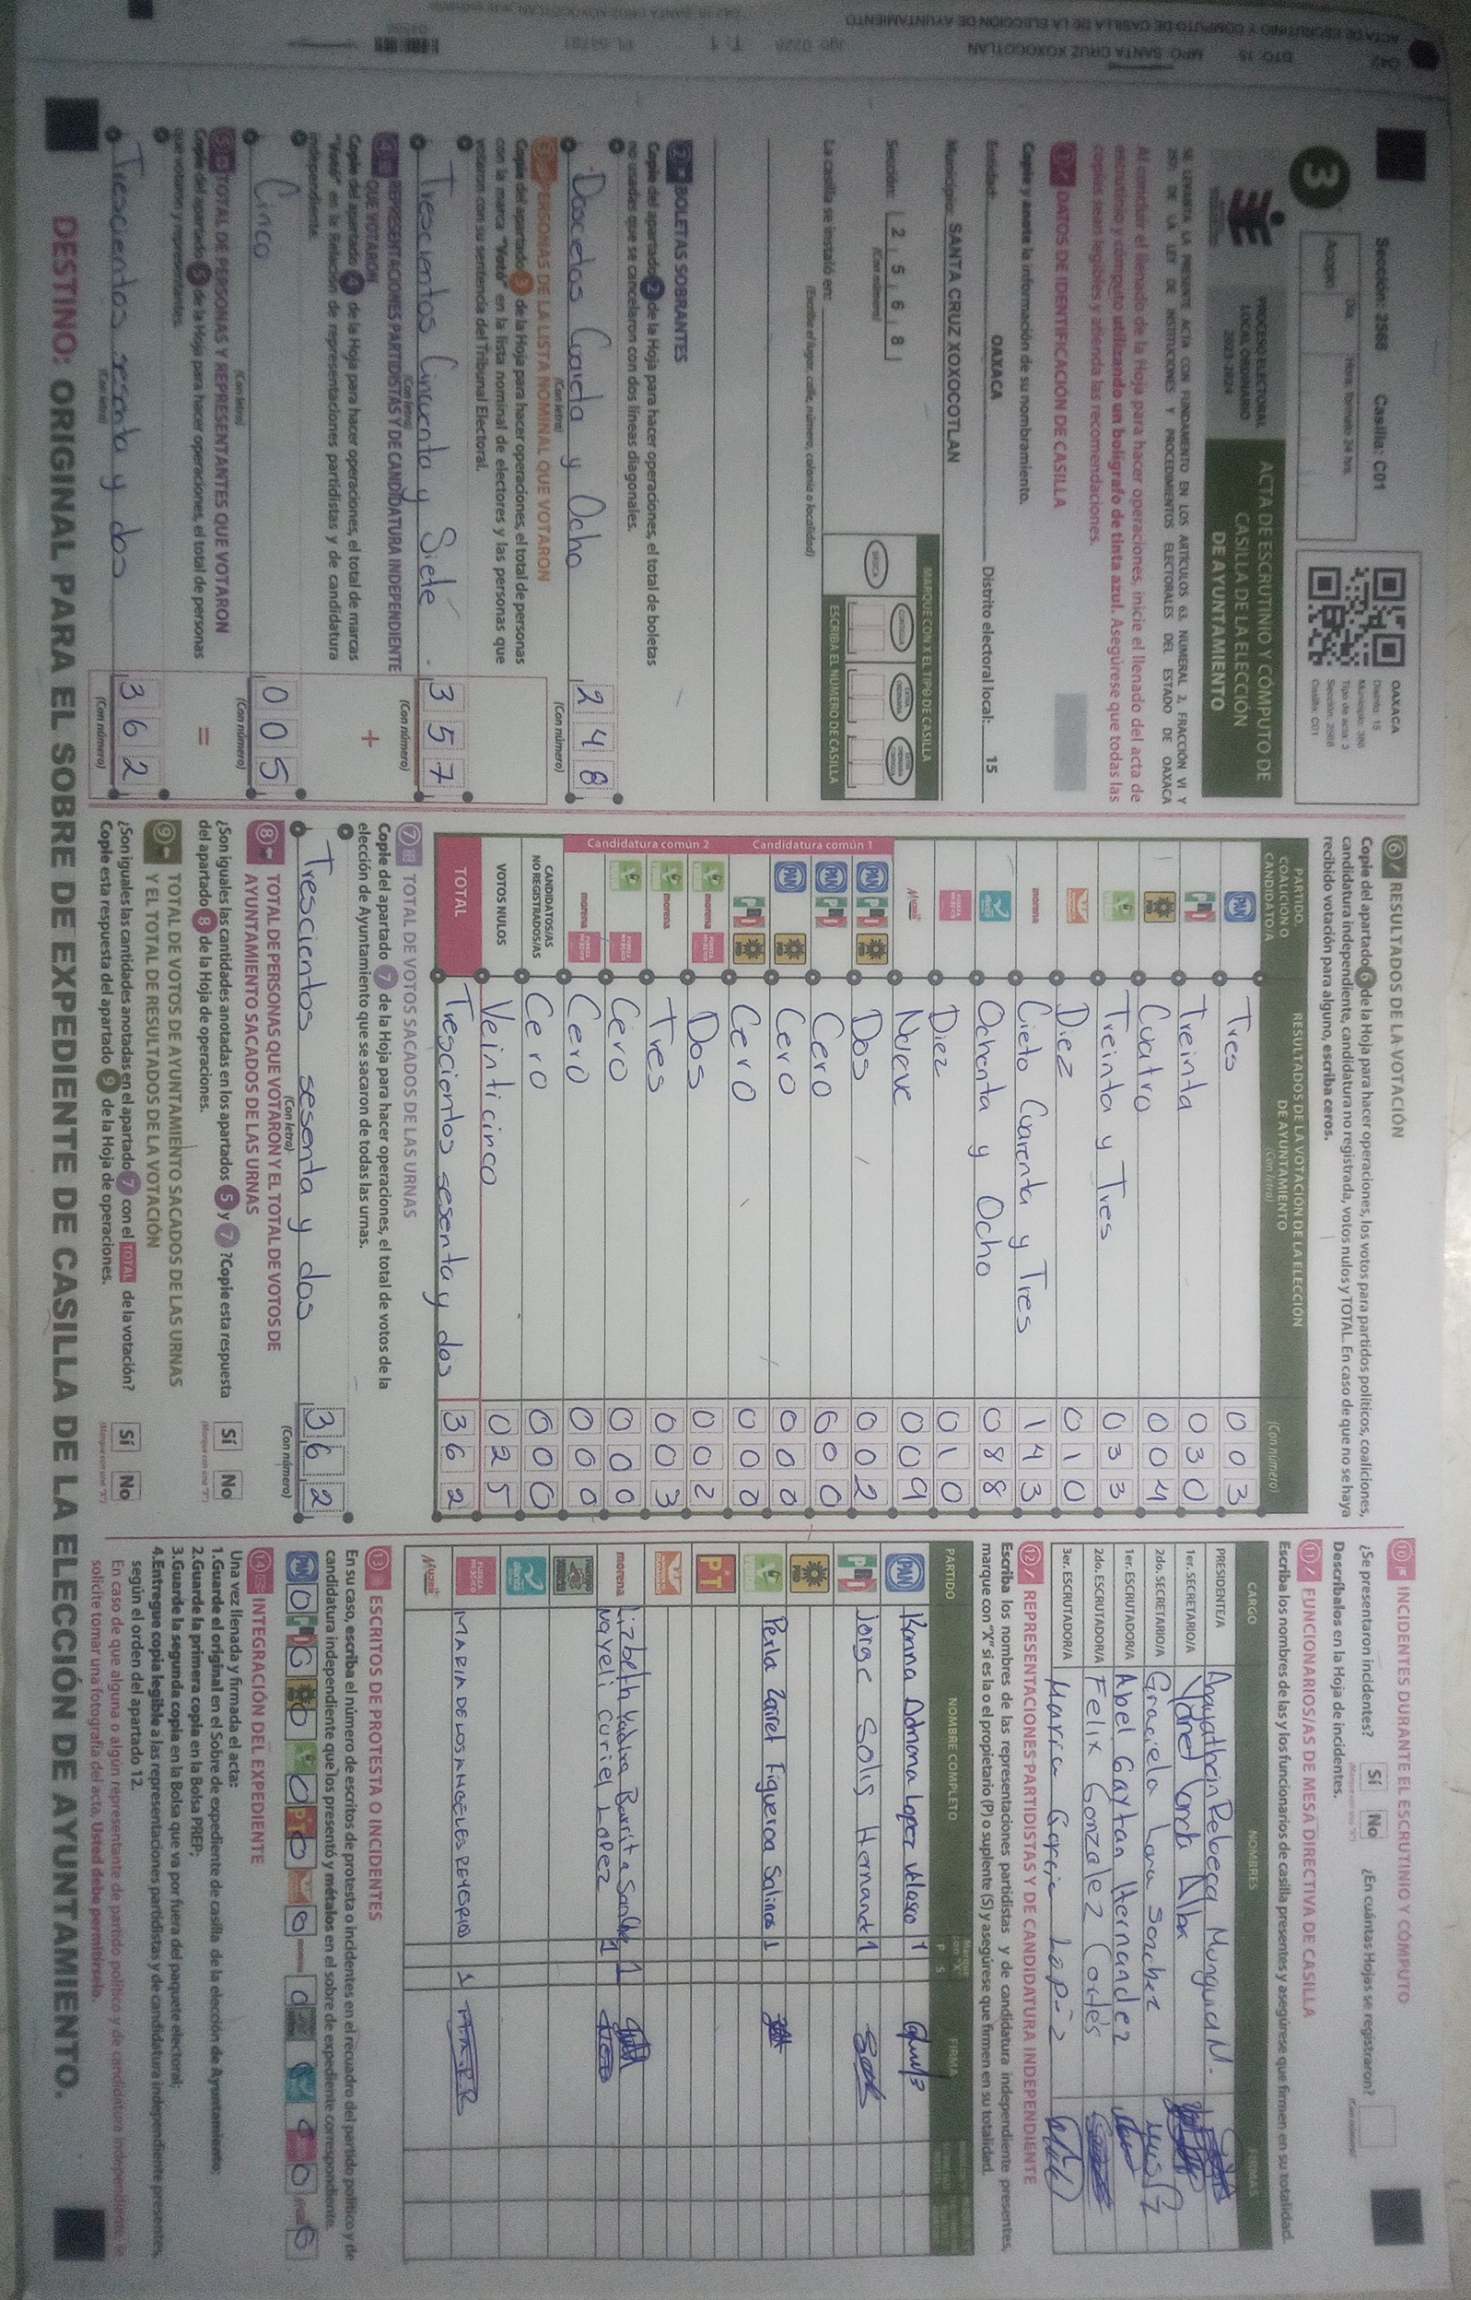 042
DTO: 15
MPO: SANTA CRUZ XOXOCOTLAN
T: 1
ACTA DE ESCRUTINIO Y CÓMPUTO DE CASILLA DE LA ELECCIÓN DE AYUNTAMIENTO
Sección: 2568 Casilla: C01
3
Día
Hora: formato 24 hrs.
Acopio
OAXACA
Distrito: 15
Tipo de acta: 3
Casilla: C01
PROCESO ELECTORAL
LOCAL ORDINARIO
2023-2024
ACTA DE ESCRUTINIO Y CÓMPUTO DE
CASILLA DE LA ELECCIÓN
DE AYUNTAMIENTO
SE LEVANTA LA PRESENTE ACTA CON FUNDAMENTO EN LOS ARTÍCULOS 63, NUMERAL 2, FRACCIÓN VI Y
DE LA LEY DE INSTITUCIONES Y PROCEDIMIENTOS ELECTORALES DEL ESTADO DE OAXACA
Al concluir el llenado de la Hoja para hacer operaciones, inicie el llenado del acta de
escrutinio y cómputo utilizando un bolígrafo de tinta azul. Asegúrese que todas las
copias sean legibles y atienda las recomendaciones.
1 DATOS DE IDENTIFICACIÓN DE CASILLA
Copie y anote la información de su nombramiento.
Entidad: OAXACA Distrito electoral local: 15
Municipio: SANTA CRUZ XOXOCOTLAN
Sección: 2 5 6 8
(Con número)
MARQUE CON X EL TIPO DE CASILLA
BÁSICA
ESCRIBA EL NÚMERO DE CASILLA
La casilla se instaló en:
(Escriba el lugar, calle, número, colonia o localidad)
2 BOLETAS SOBRANTES
Copie del apartado 2 de la Hoja para hacer operaciones, el total de boletas
no usadas que se cancelaron con dos líneas diagonales.
Doscetos Cuareta y Ocho 248
(Con letra) (Con número)
3 PERSONAS DE LA LISTA NOMINAL QUE VOTARON
Copie del apartado 3 de la Hoja para hacer operaciones, el total de personas
con la marca "Votó" en la lista nominal de electores y las personas que
votaron con su sentencia del Tribunal Electoral.
Trescientos Cincuenta y Siete 357
(Con letra) (Con número)
4 REPRESENTACIONES PARTIDISTAS Y DE CANDIDATURA INDEPENDIENTE
QUE VOTARON
Copie del apartado 4 de la Hoja para hacer operaciones, el total de marcas
"Votó" en la Relación de representaciones partidistas y de candidatura
independiente.
+
Cinco 005
(Con letra) (Con número)
5 TOTAL DE PERSONAS Y REPRESENTANTES QUE VOTARON
Copie del apartado 5 de la Hoja para hacer operaciones, el total de personas
que votaron y representantes.
=
Trescientos sesenta y dos 362
(Con letra) (Con número)
6 RESULTADOS DE LA VOTACIÓN
Copie del apartado 6 de la Hoja para hacer operaciones, los votos para partidos políticos, coaliciones,
candidatura independiente, candidatura no registrada, votos nulos y TOTAL. En caso de que no se haya
recibido votación para alguno, escriba ceros.
PARTIDO,
COALICIÓN O
CANDIDATO/A
RESULTADOS DE LA VOTACIÓN DE LA ELECCIÓN
DE AYUNTAMIENTO
(Con letra) (Con número)
PAN Tres 003
PRI Treinta 030
PRD Cuatro 004
Treinta y Tres 033
Diez 010
morena Cieto Cuarenta y Tres 143
Ochenta y Ocho 088
Diez 010
Nueve 009
Candidatura común 1
PAN PRI PRD Dos 002
PAN PRI Cero 000
PAN PRD Cero 000
PRI PRD Cero 000
Candidatura común 2
morena Dos 002
morena Tres 003
Cero 000
morena Cero 000
CANDIDATOS/AS
NO REGISTRADOS/AS Cero 000
VOTOS NULOS Veinticinco 025
TOTAL Trescientos sesenta y dos 362
7 TOTAL DE VOTOS SACADOS DE LAS URNAS
Copie del apartado 7 de la Hoja para hacer operaciones, el total de votos de la
elección de Ayuntamiento que se sacaron de todas las urnas.
Trescientos sesenta y dos 362
(Con letra) (Con número)
8 TOTAL DE PERSONAS QUE VOTARON Y EL TOTAL DE VOTOS DE
AYUNTAMIENTO SACADOS DE LAS URNAS
¿Son iguales las cantidades anotadas en los apartados 5 y 7? Copie esta respuesta
del apartado 8 de la Hoja de operaciones.
Sí No
9 TOTAL DE VOTOS DE AYUNTAMIENTO SACADOS DE LAS URNAS
Y EL TOTAL DE RESULTADOS DE LA VOTACIÓN
¿Son iguales las cantidades anotadas en el apartado 7 con el TOTAL de la votación?
Copie esta respuesta del apartado 9 de la Hoja de operaciones.
Sí No
10 INCIDENTES DURANTE EL ESCRUTINIO Y CÓMPUTO
¿Se presentaron incidentes? Sí No ¿En cuántas Hojas se registraron?
Descríbalos en la Hoja de incidentes.
11 FUNCIONARIOS/AS DE MESA DIRECTIVA DE CASILLA
Escriba los nombres de las y los funcionarios de casilla presentes y asegúrese que firmen en su totalidad.
CARGO NOMBRES FIRMAS
PRESIDENTE/A
1er. SECRETARIO/A
2do. SECRETARIO/A Graciela Lara Sanchez
1er. ESCRUTADOR/A Abel Gaytan Hernandez
2do. ESCRUTADOR/A Felix Gonzalez Cortés
3er. ESCRUTADOR/A
12 REPRESENTACIONES PARTIDISTAS Y DE CANDIDATURA INDEPENDIENTE
Escriba los nombres de las representaciones partidistas y de candidatura independiente presentes,
marque con "X" si es la o el propietario (P) o suplente (S) y asegúrese que firmen en su totalidad.
PARTIDO NOMBRE COMPLETO P S FIRMA
PAN Karina Adriana Lopez Velasco
PRI Jorge Solis Hernandez 1
Perla Zarret Figueroa Salinas 1
PT
morena
Nayeli Curiel Lopez 1
MARIA DE LOS ANGELES REYES RIOS 1
13 ESCRITOS DE PROTESTA O INCIDENTES
En su caso, escriba el número de escritos de protesta o incidentes en el recuadro del partido político y de
candidatura independiente que los presentó y métalos en el sobre de expediente correspondiente.
14 INTEGRACIÓN DEL EXPEDIENTE
Una vez llenada y firmada el acta:
1.Guarde el original en el Sobre de expediente de casilla de la elección de Ayuntamiento;
2.Guarde la primera copia en la Bolsa PREP;
3.Guarde la segunda copia en la Bolsa que va por fuera del paquete electoral;
4.Entregue copia legible a las representaciones partidistas y de candidatura independiente presentes,
según el orden del apartado 12.
En caso de que alguna o algún representante de partido político y de candidatura independiente, le
solicite tomar una fotografía del acta, Usted debe permitírselo.
DESTINO: ORIGINAL PARA EL SOBRE DE EXPEDIENTE DE CASILLA DE LA ELECCIÓN DE AYUNTAMIENTO.